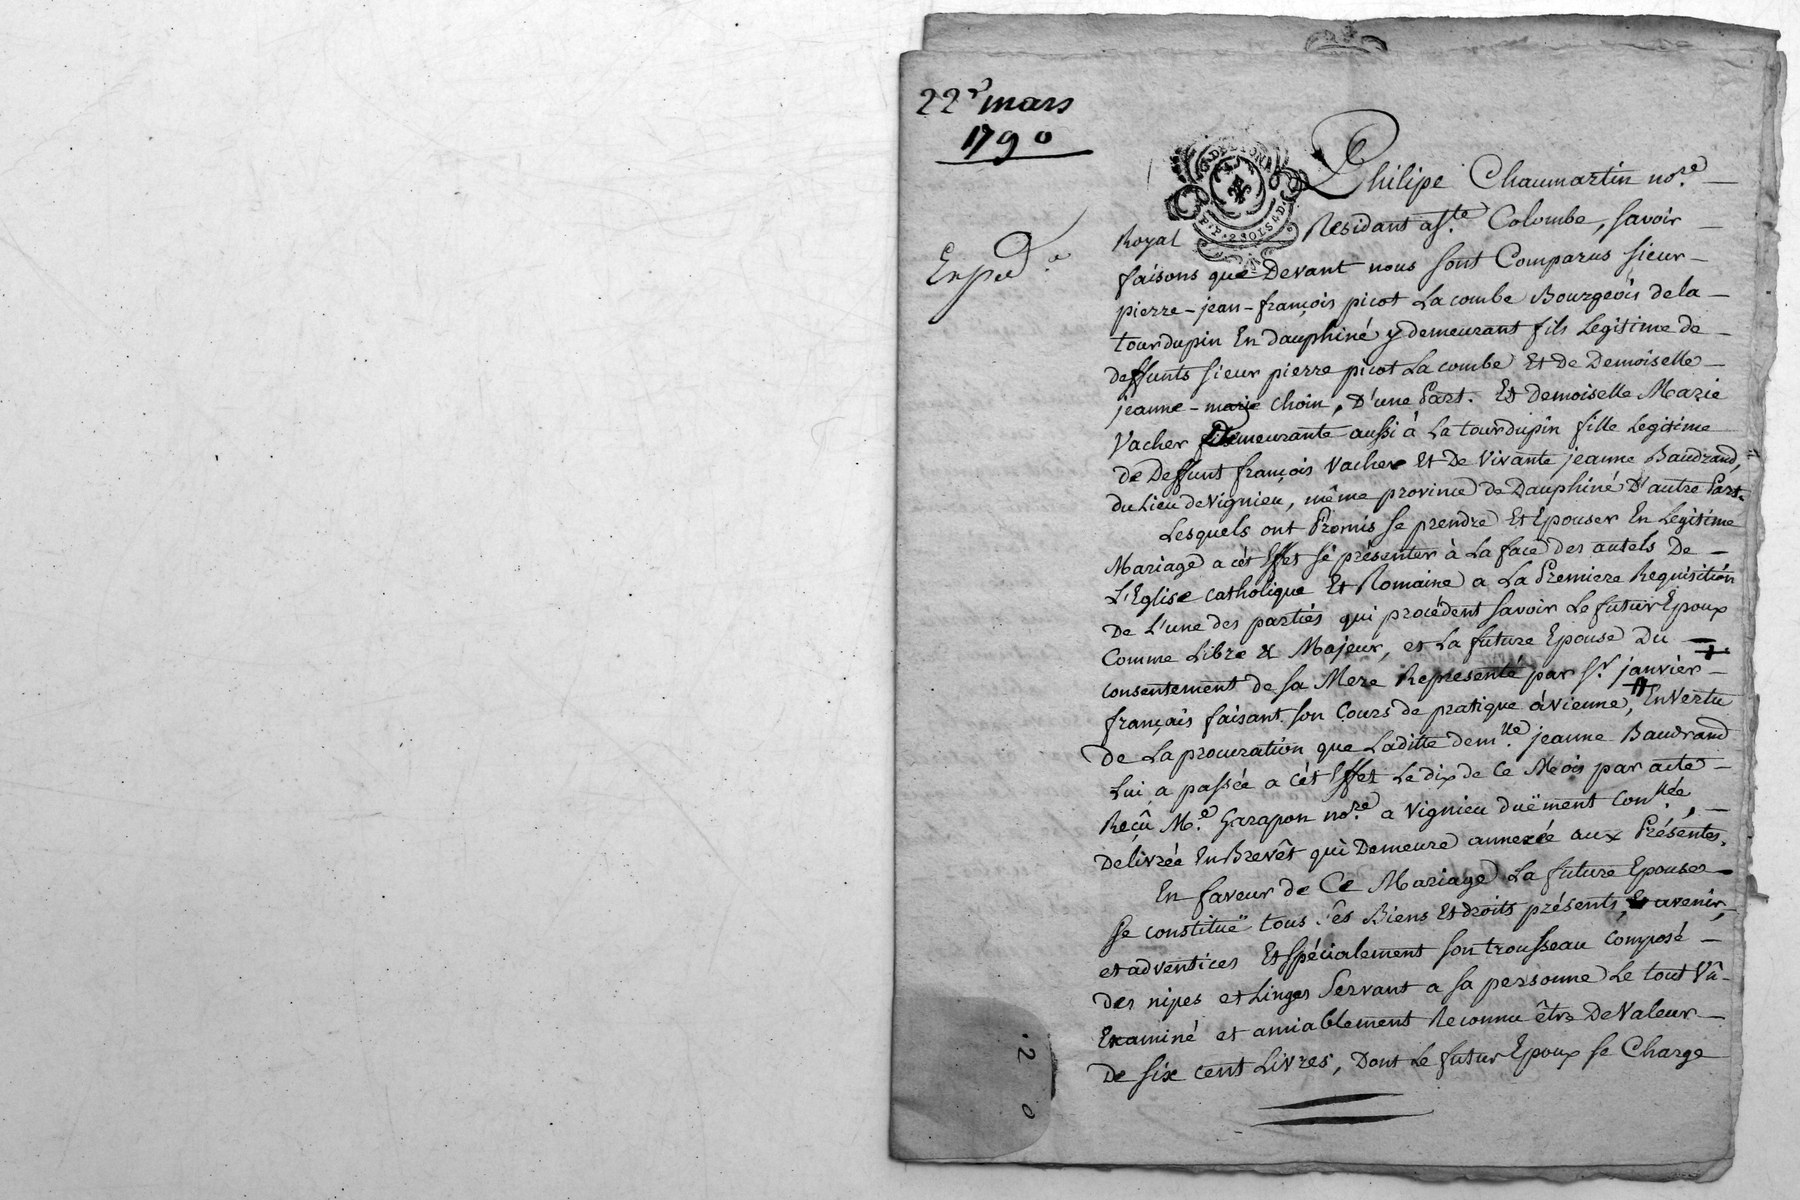 22e mars
1790
Philipe Chaumartin nore.
Royal Residant a Ste. Colombe, savoir
Expéd.
faisons que Devant nous sont Comparus sieur
pierre-jean-françois picot La combe Bourgeois de la
tourdupin En dauphiné y demeurant fils Legitime de
deffunts sieur pierre picot La combe Et de Demoiselle
jeanne-marie Choin, D'une Part. Et demoiselle Marie
Vacher Demeurante aussi à La tourdupin fille Legitime
de Deffunt françois Vacher Et De Vivante jeanne Baudrand,
du Lieu de Vignieu, même province de Dauphiné D'autre Part.
Lesquels ont Promis se prendre Et Epouser En Legitime
Mariage a cét Effet sé présenter à La face des autels De
L'Eglise catholique Et Romaine a La Premiere Requisition
De L'une des parties qui procédent savoir Le futur Epoux
Comme Libre & Majeur, et La future Epouse Du
consentement de sa Mere Representé par Sr. janvier
français faisant son Cours de pratique à Vienne, En Vertu
de La procuration que Laditte demlle. jeanne Baudrand
Lui a passée a Cét Effet Le dix de Ce Mois par acte
Reçû Me. Garapon nore. a Vignieu duëment Conllée,
Delivrée En Brevêt qui Demeure annexée aux Présentes.
En faveur de Ce Mariage La future Epouse
se constituë tous sés Biens Et droits présents, & avenir,
et adventices Et spécialement son trousseau composé
des nipes et Linges Servant a sa personne Le tout Vû
Examiné et amiablement Reconnu être De Valeur
De six cent Livres, Dont Le futur Epoux se Charge
2 0